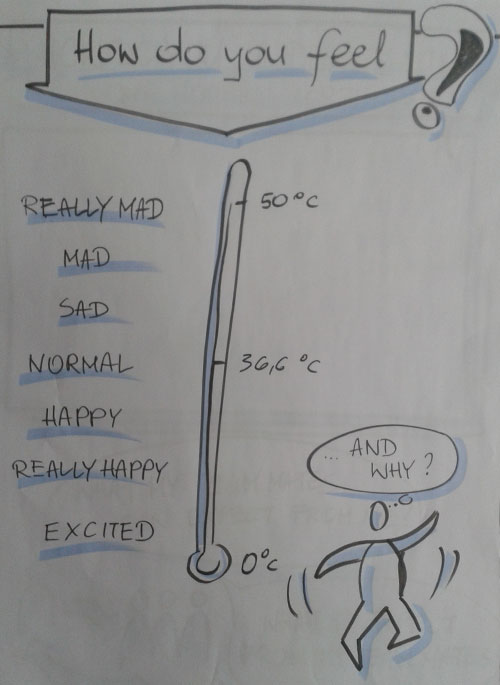 How do you feel ?
REALLY MAD
50°C
MAD
SAD
NORMAL
36,6 °C
HAPPY
REALLY HAPPY
EXCITED
0°C
... AND
WHY ?